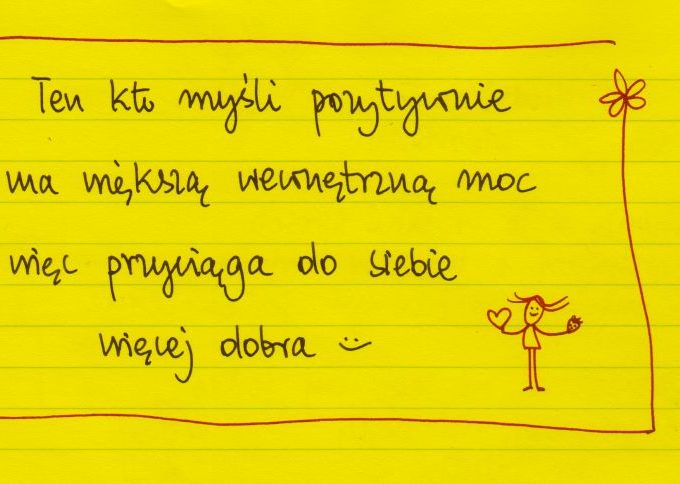 Ten kto myśli pozytywnie
ma większą wewnętrzną moc
więc przyciąga do siebie
więcej dobra :)